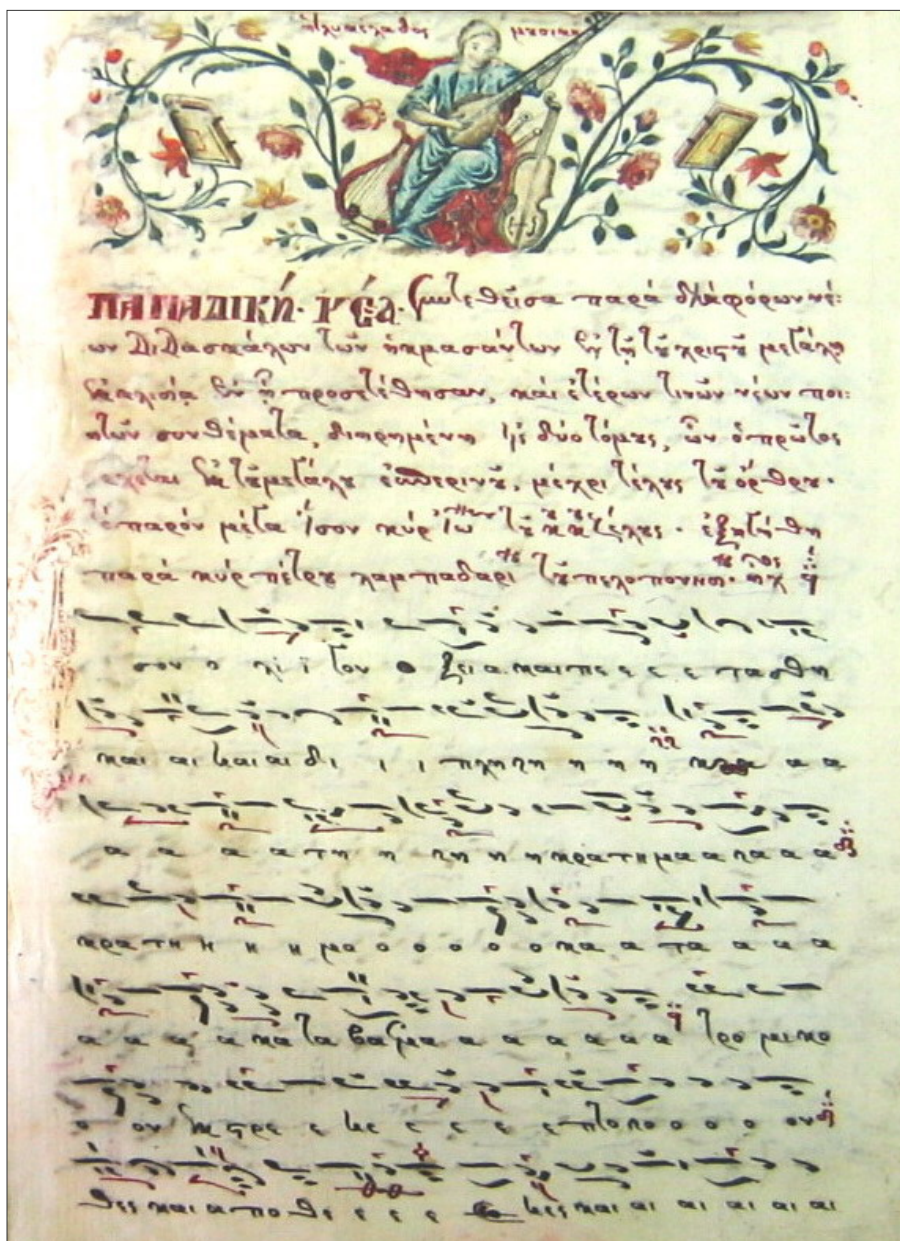 ΠΑΠΑΔΙΚΗ· ΝΕΑ· συντεθεῖσα παρὰ διαφόρων νέ:
ων Διδασκάλων τῶν ἠκμασάντων ἐν τῇ τοῦ χριστοῦ μεγάλῃ
ἐκκλησίᾳ ἐν ᾗ προσετέθησαν, καὶ ἑτέρων τινῶν νέων ποι:
ητῶν συνθέματα, διῃρημένη εἰς δύο τόμους, ὧν ὁ πρῶτος
τοῦ μεγάλου ἑσπερινοῦ, μέχρι τέλους τοῦ ὄρθρου·
παρὸν μέγα Ἴσον κὺρ Ἰω τοῦ κουκουζέλους· ἐξηγήθη
παρὰ κὺρ πέτρου λαμπαδαρίου τοῦ πελοποννησίου· ἦχος
σον ο λι ι γον ο ξει α και πε ε ε ε τασθη
και αι και αι δι ι ι πλη η η η η κρα α α
α α α α τη η η η η κρατημα α α α α
κρατη η η η μο ο ο ο ο ο κα α τα α α α
α α α α κα τα βα σμα α α α α α α α τρο μι κο
ο ον εκ στρε ε κε ε ε ε ε πτο πο ο ο ο ον
θες και α πο θε ε ε ε κες και αι αι αι αι αι